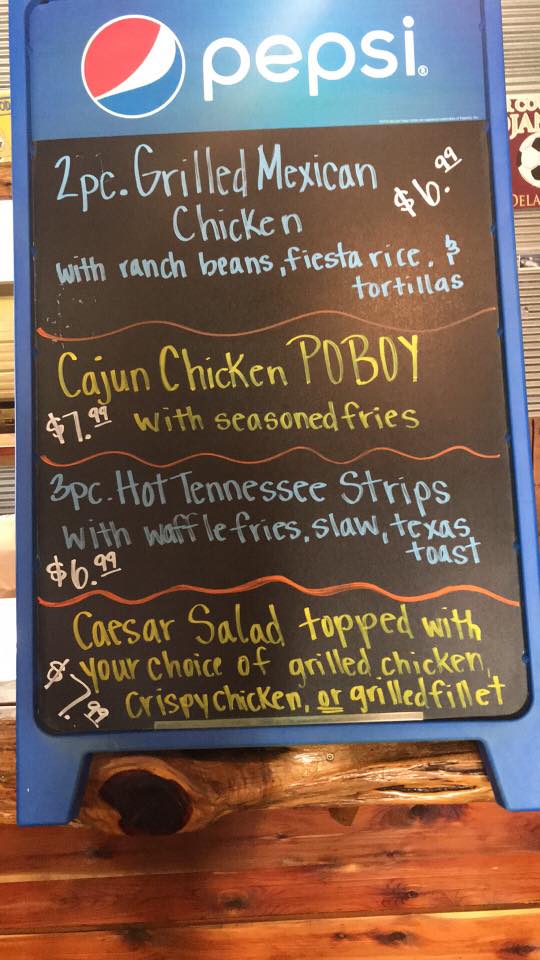 pepsi®
2pc. Grilled Mexican
Chicken
$6.99
with ranch beans, fiesta rice, &
tortillas
Cajun Chicken POBOY
$7.99 with seasoned fries
3pc. Hot Tennessee Strips
with waffle fries, slaw, texas
toast
$6.99
Caesar Salad topped with
$7.99 your choice of grilled chicken,
crispy chicken, or grilled fillet